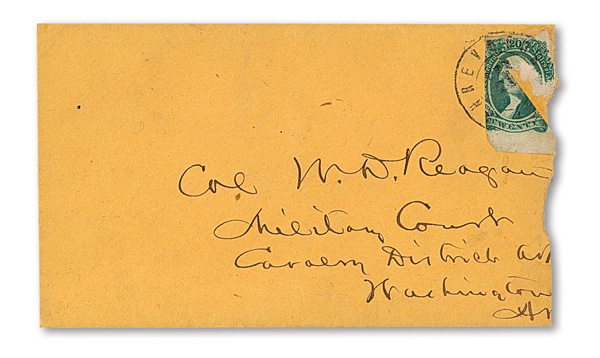 20
REV
TWENTY
Col W. D. Reagan
Military Court
Cavalry District
Washington
Ar